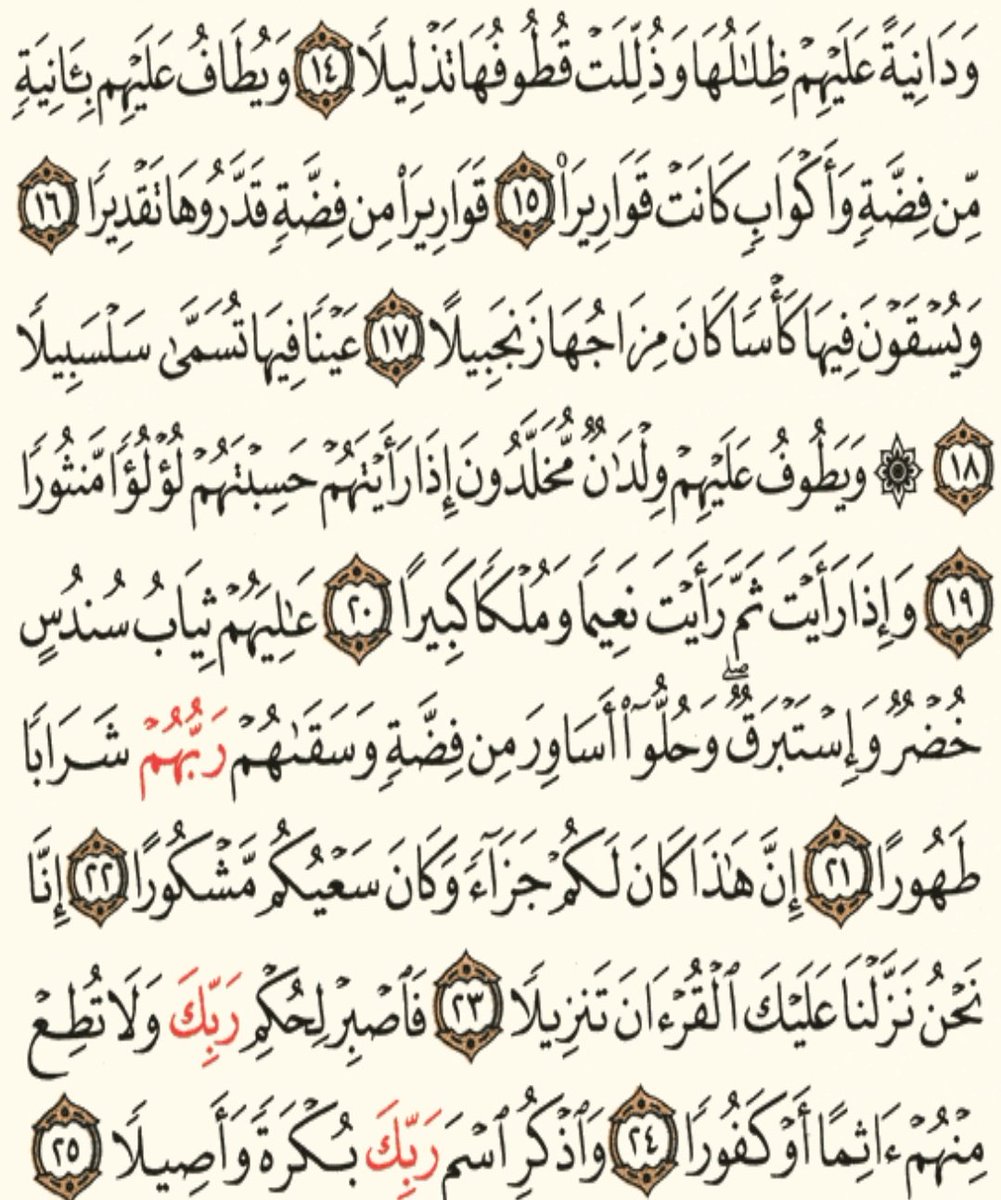 وَدَانِيَةً عَلَيْهِمْ ظِلَٰلُهَا وَذُلِّلَتْ قُطُوفُهَا تَذْلِيلًا ١٤ وَيُطَافُ عَلَيْهِم بِـَٔانِيَةٍ
مِّن فِضَّةٍ وَأَكْوَابٍ كَانَتْ قَوَارِيرَا۠ ١٥ قَوَارِيرَا۟ مِن فِضَّةٍ قَدَّرُوهَا تَقْدِيرًا ١٦
وَيُسْقَوْنَ فِيهَا كَأْسًا كَانَ مِزَاجُهَا زَنجَبِيلًا ١٧ عَيْنًا فِيهَا تُسَمَّىٰ سَلْسَبِيلًا
١٨ ۞ وَيَطُوفُ عَلَيْهِمْ وِلْدَٰنٌ مُّخَلَّدُونَ إِذَا رَأَيْتَهُمْ حَسِبْتَهُمْ لُؤْلُؤًا مَّنثُورًا
١٩ وَإِذَا رَأَيْتَ ثَمَّ رَأَيْتَ نَعِيمًا وَمُلْكًا كَبِيرًا ٢٠ عَٰلِيَهُمْ ثِيَابُ سُندُسٍ
خُضْرٌ وَإِسْتَبْرَقٌ ۖ وَحُلُّوٓا۟ أَسَاوِرَ مِن فِضَّةٍ وَسَقَىٰهُمْ رَبُّهُمْ شَرَابًا
طَهُورًا ٢١ إِنَّ هَٰذَا كَانَ لَكُمْ جَزَآءً وَكَانَ سَعْيُكُم مَّشْكُورًا ٢٢ إِنَّا
نَحْنُ نَزَّلْنَا عَلَيْكَ ٱلْقُرْءَانَ تَنزِيلًا ٢٣ فَٱصْبِرْ لِحُكْمِ رَبِّكَ وَلَا تُطِعْ
مِنْهُمْ ءَاثِمًا أَوْ كَفُورًا ٢٤ وَٱذْكُرِ ٱسْمَ رَبِّكَ بُكْرَةً وَأَصِيلًا ٢٥